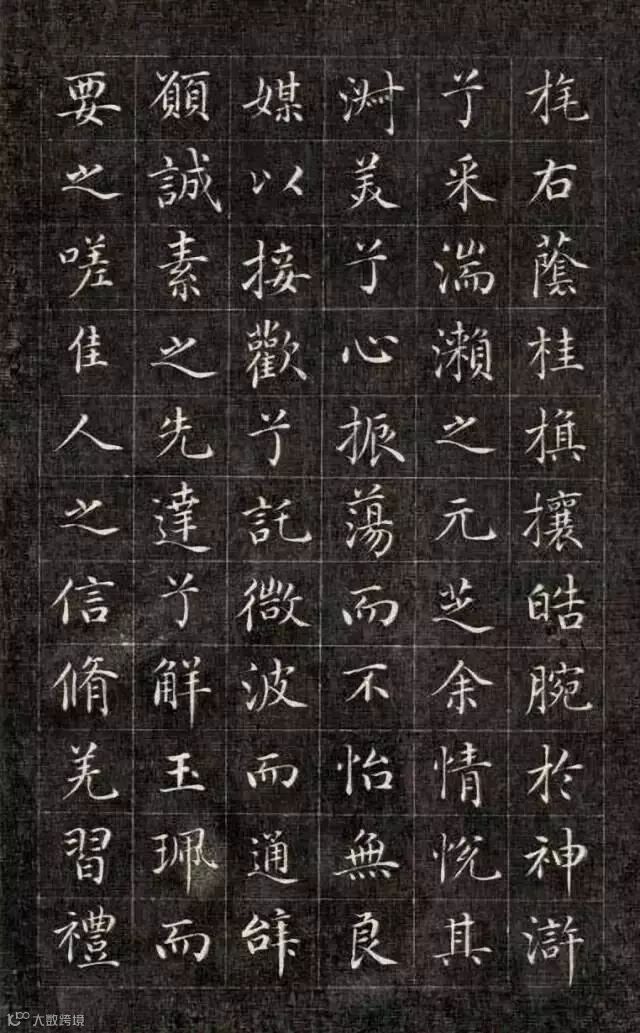 旄右蔭桂旗攘皓腕於神滸
兮采湍瀨之元芝余情悅其
淑美兮心振蕩而不怡無良
媒以接歡兮託微波而通辭
願誠素之先達兮解玉珮而
要之嗟佳人之信脩羌習禮
大数跨境